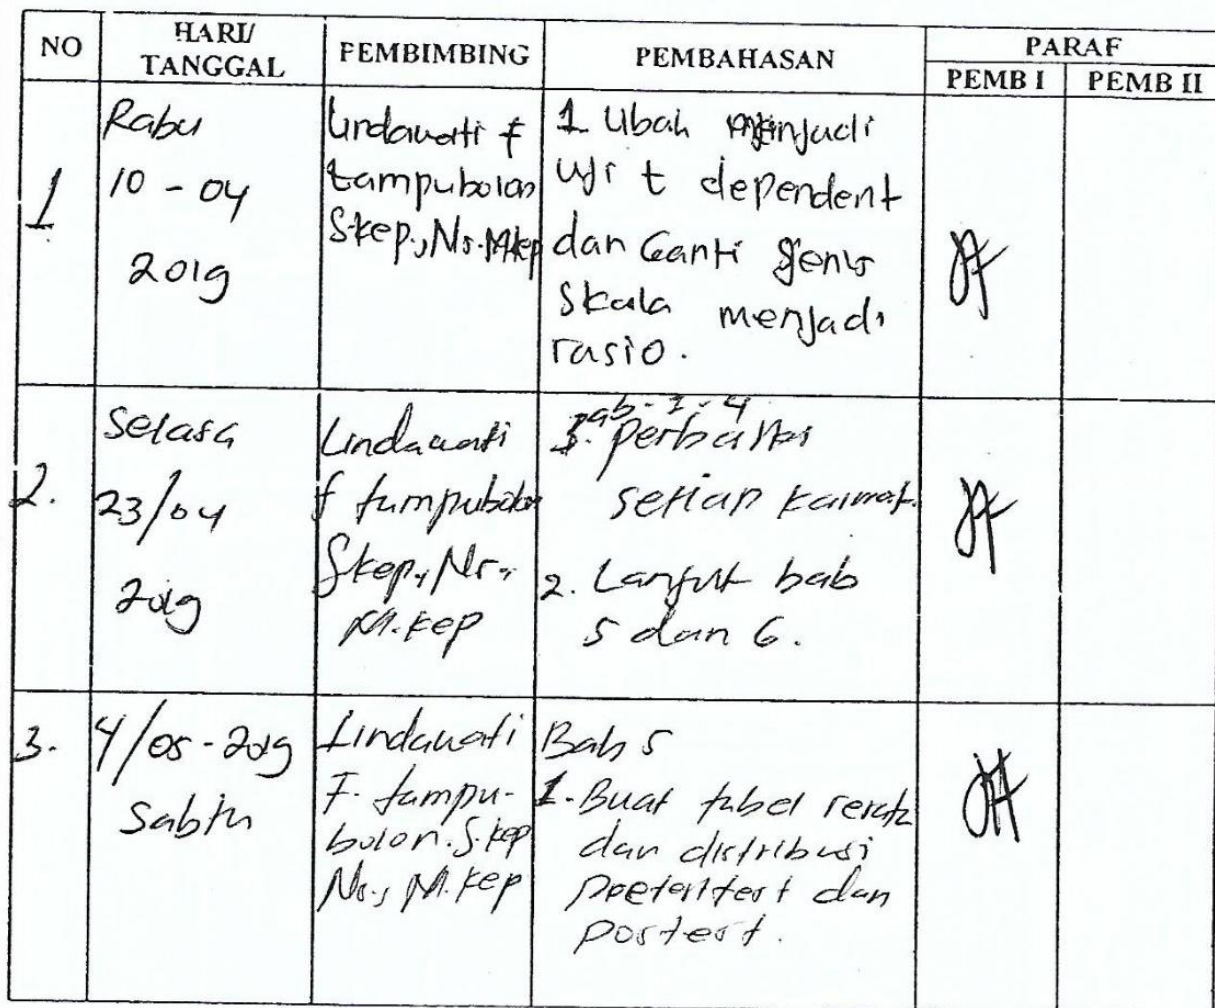 NO
HARI/
TANGGAL
PEMBIMBING
PEMBAHASAN
PARAF
PEMB I
PEMB II
1
Rabu
10 - 04
2019
Lindawati f
tampubolon
S.kep.,Ns.M.kep
1 Ubah menjadi
uji t dependent
dan Ganti jenis
skala menjadi
rasio.
2.
Selasa
23/04
2019
Lindawati
f tampubolon
S.kep., Nr.,
M.kep
bab - 1 - 4
1. perbaiki
setiap kalimat.
2. Lanjut bab
5 dan 6.
3.
4/05-2019
Sabtu
Lindawati
F. tampu-
bolon. S.kep
Ns., M.kep
Bab 5
1. Buat tabel rerata
dan distribusi
dan
postest.